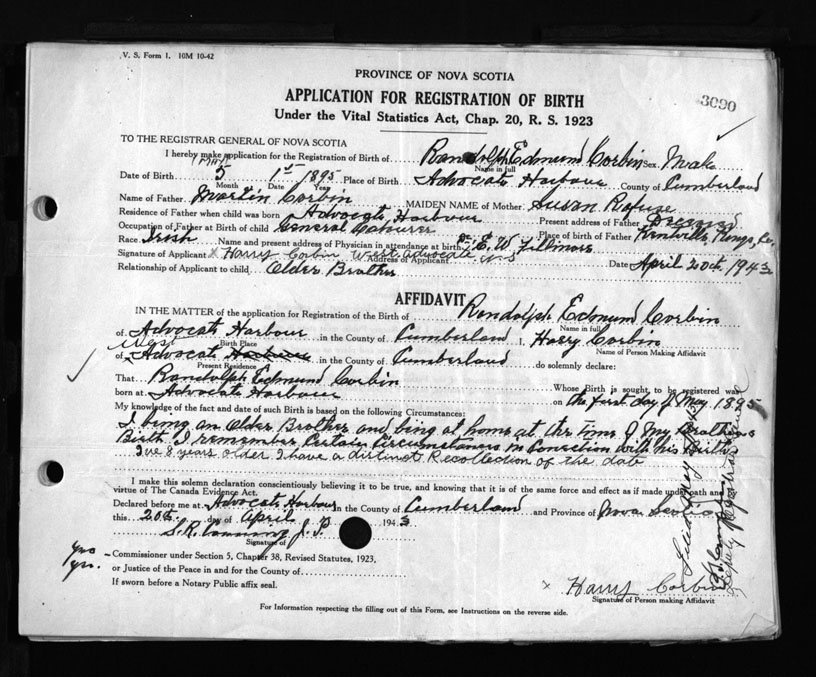 V. S. Form 1. 10M 10-42
PROVINCE OF NOVA SCOTIA
3090
APPLICATION FOR REGISTRATION OF BIRTH
Under the Vital Statistics Act, Chap. 20, R. S. 1923
TO THE REGISTRAR GENERAL OF NOVA SCOTIA
I hereby make application for the Registration of Birth of Randolph Edmund Corbin Sex Male
Name in full
May
Date of Birth 5 1st 1895 Place of Birth Advocate Harbour County of Cumberland
Month Date Year
Name of Father Martin Corbin MAIDEN NAME of Mother Susan Refuse
Residence of Father when child was born Advocate Harbour Present address of Father Deceased
Occupation of Father at Birth of child General Labourer Place of Birth of Father Kentville, Kings, Co.
Race Irish Name and present address of Physician in attendance at birth Dr E. W. Fillmore
Signature of Applicant x Harry Corbin Address of Applicant West Advocate N.S Date April 20th 1943
Relationship of Applicant to child Older Brother
AFFIDAVIT
IN THE MATTER of the application for Registration of the Birth of Randolph Edmund Corbin
Name in full
of Advocate Harbour in the County of Cumberland I, Harry Corbin
Birth Place Name of Person Making Affidavit
West
of Advocate Harbour in the County of Cumberland do solemnly declare:
Present Residence
That Randolph Edmund Corbin Whose Birth is sought to be registered was
born at Advocate Harbour on the first day of May 1895
My knowledge of the fact and date of such Birth is based on the following Circumstances:
I being an Older Brother and being at home at the time of My Brothers
Birth I remember Certain Circumstances in Conection with his Birth
I we 8 years older I have a distinct Recollection of the date
I make this solemn declaration conscientiously believing it to be true, and knowing that it is of the same force and effect as if made under oath and
virtue of The Canada Evidence Act.
Declared before me at Advocate Harbour in the County of Cumberland and Province of Nova Scotia
this 20th day of April 1943
S.R. J. P.
Signature of
Commissioner under Section 5, Chapter 38, Revised Statutes, 1923,
or Justice of the Peace in and for the County of
If sworn before a Notary Public affix seal.
x Harry Corbin
Signature of Person making Affidavit
Deputy Registrar
For Information respecting the filling out of this Form, see Instructions on the reverse side.